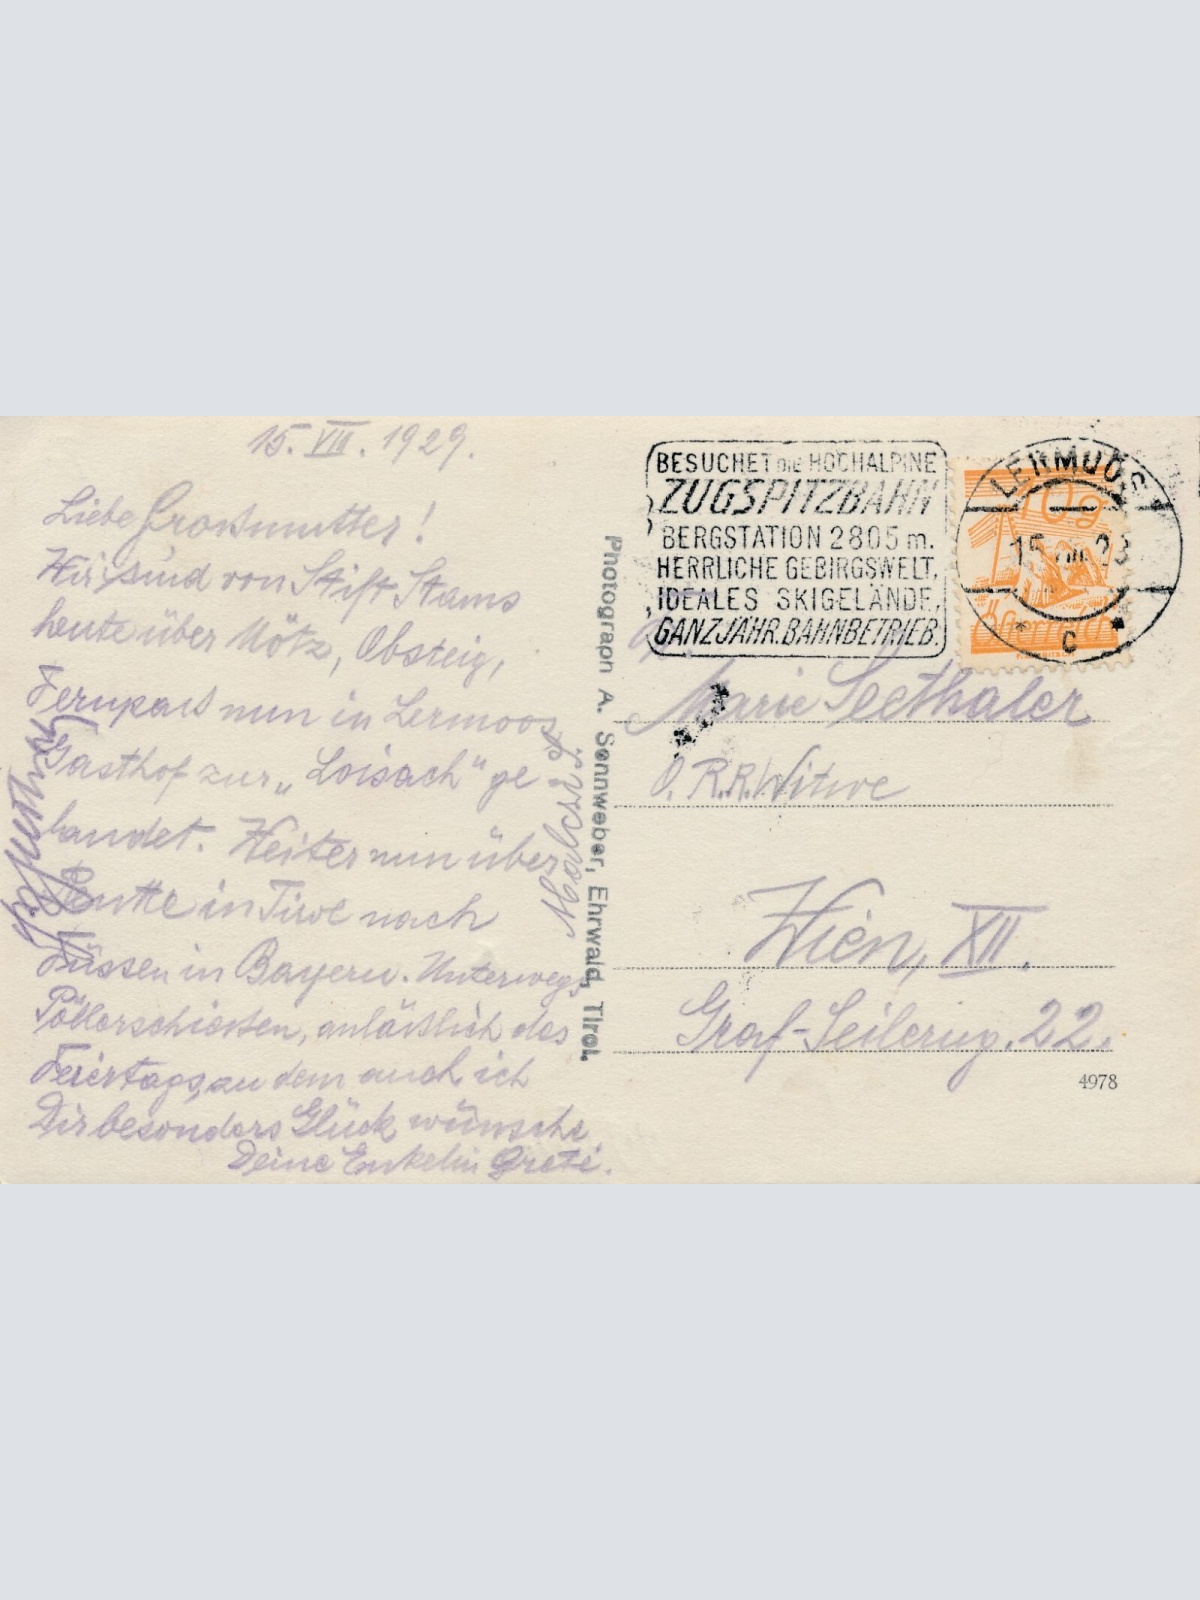 15. VIII. 1929.
Liebe Grossmutter!
Wir sind von Stift Stams
heute über Mötz, Obsteig,
Fernpass nun in Lermoos
Gasthof zur „Loisach" ge-
landet. Weiter nun über
Reutte in Tirol nach
Füssen in Bayern. Unterwegs
Pöllerschiessen, anlässlich des
Feiertags, zu dem auch ich
Dir besonders Glück wünsche
Deine Enkelin Grete.
Photograph A. Sonnweber, Ehrwald, Tirol.
BESUCHET DIE HOCHALPINE
ZUGSPITZBAHN
BERGSTATION 2805 m.
HERRLICHE GEBIRGSWELT,
IDEALES SKIGELÄNDE,
GANZJÄHR. BAHNBETRIEB.
LERMOOS
15. VIII. 29
* C *
10g
Österreich
Marie Seethaler
O. R. R. Witwe
Wien, XII.
Graf-Seilerng. 22.
4978